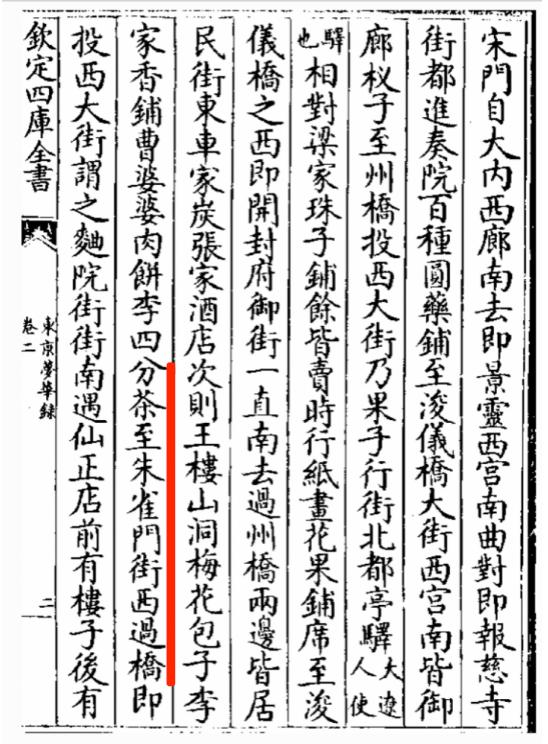 宋門自大内西廊南去即景靈西宮南曲對即報慈寺
街都進奏院百種圓藥鋪至浚儀橋大街西宮南皆御
廊杈子至州橋投西大街乃果子行街北都亭驛大遼人使
驛也相對梁家珠子鋪餘皆賣時行紙畫花果鋪席至浚
儀橋之西即開封府御街一直南去過州橋兩邊皆居
民街東車家炭張家酒店次則王樓山洞梅花包子李
家香鋪曹婆婆肉餅李四分茶至朱雀門街西過橋即
投西大街謂之麯院街街南遇仙正店前有樓子後有
欽定四庫全書
東京夢華錄
卷二
二